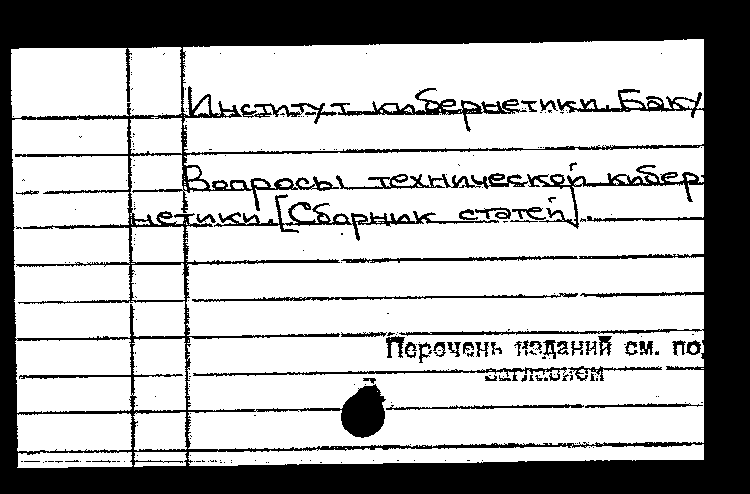 Институт кибернетики. Баку
Вопросы технической кибер-
нетики. [Сборник статей].
Перечень изданий см. под
заглавием